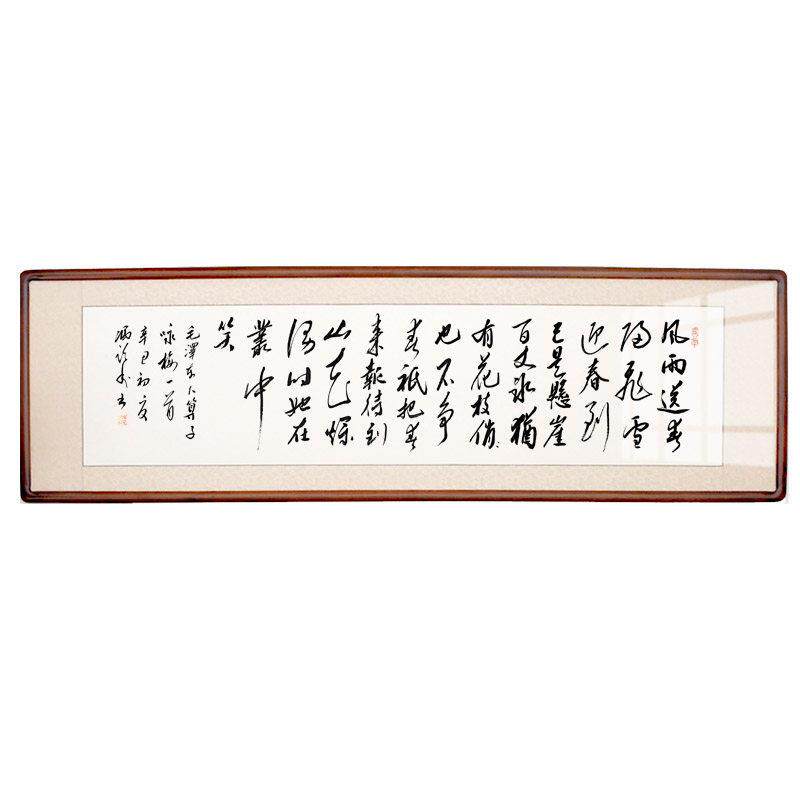 风雨送春
归飛雪
迎春到
已是懸崖
百丈冰猶
有花枝俏
也不争
春祇把春
来報待到
山花烂
漫时她在
叢中
笑
毛澤东卜算子
咏梅一首
辛巳初夏
书